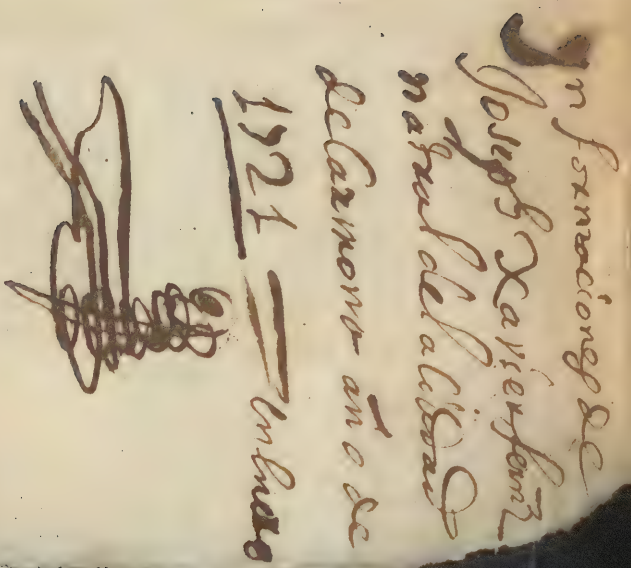 Ynformaciones de
Joseph Xavier fern̄z
natural de la Ciudad
de la año de
1721